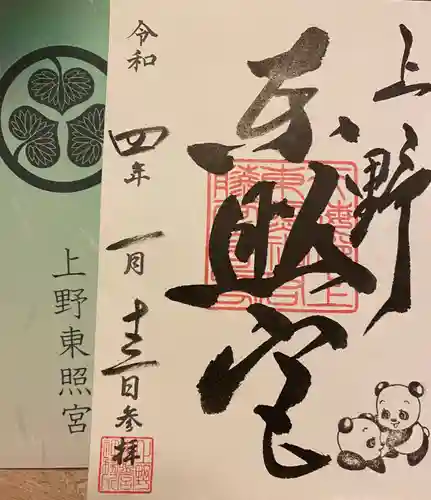 上野
東照宮
令和四年一月十三日参拝
上野東照宮